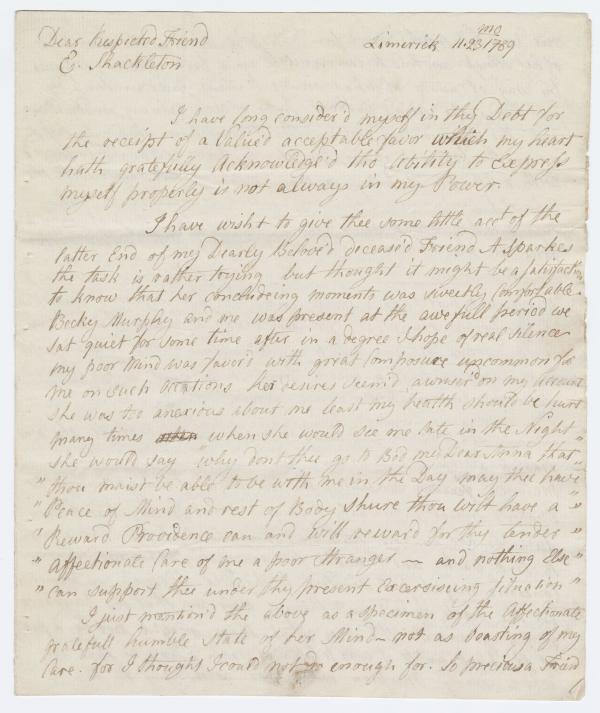 Dear Respected Friend
E. Shackleton
Limerick 11 mo 23 1789
I have long consider'd myself in thy Debt for
the receipt of a Valued acceptable favor which my heart
hath gratefully Acknowledg'd tho Ability to Express
myself properly is not always in my Power.
I have wisht to give thee some little acct of the
latter End of my Dearly Belov'd deceas'd Friend A Sparkes
the task is rather trying but thought it might be a satisfaction
to know that her concludeing moments was sweetly Comfortable
Becky Murphy and me was present at the awefull period we
sat quiet for some time after in a degree I hope of real silence
my poor Mind was favor'd with great Composure uncommon for
me on such Occations her desires seem'd answer'd on my account
she was too anxious about me least my health should be hurt
many times when she would see me late in the Night
she would say "why dont thee go to Bed my Dear Anna that"
" thou maist be able to be with me in the Day may thee have
" Peace of Mind and rest of Body shure thou wilt have a "
" Reward Providence can and will reward for thy tender "
" Affectionate Care of me a poor Stranger ~ and nothing Else "
" can support thee under thy present Excersiseing Situation "
I just mention'd the above as a specimen of the Affectionate
gratefull humble State of her Mind ~ not as boasting of my
Care. for I thought I could not do enough for. so precious a Friend